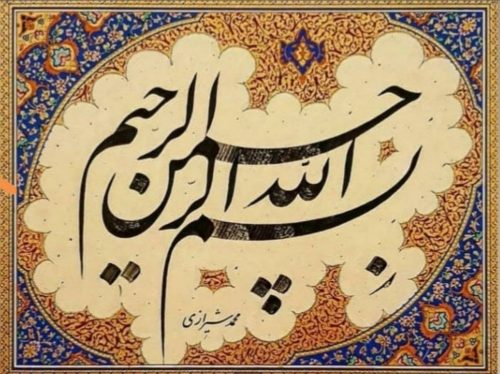 بسم الله الرحمن الرحیم
محمد شیرازی